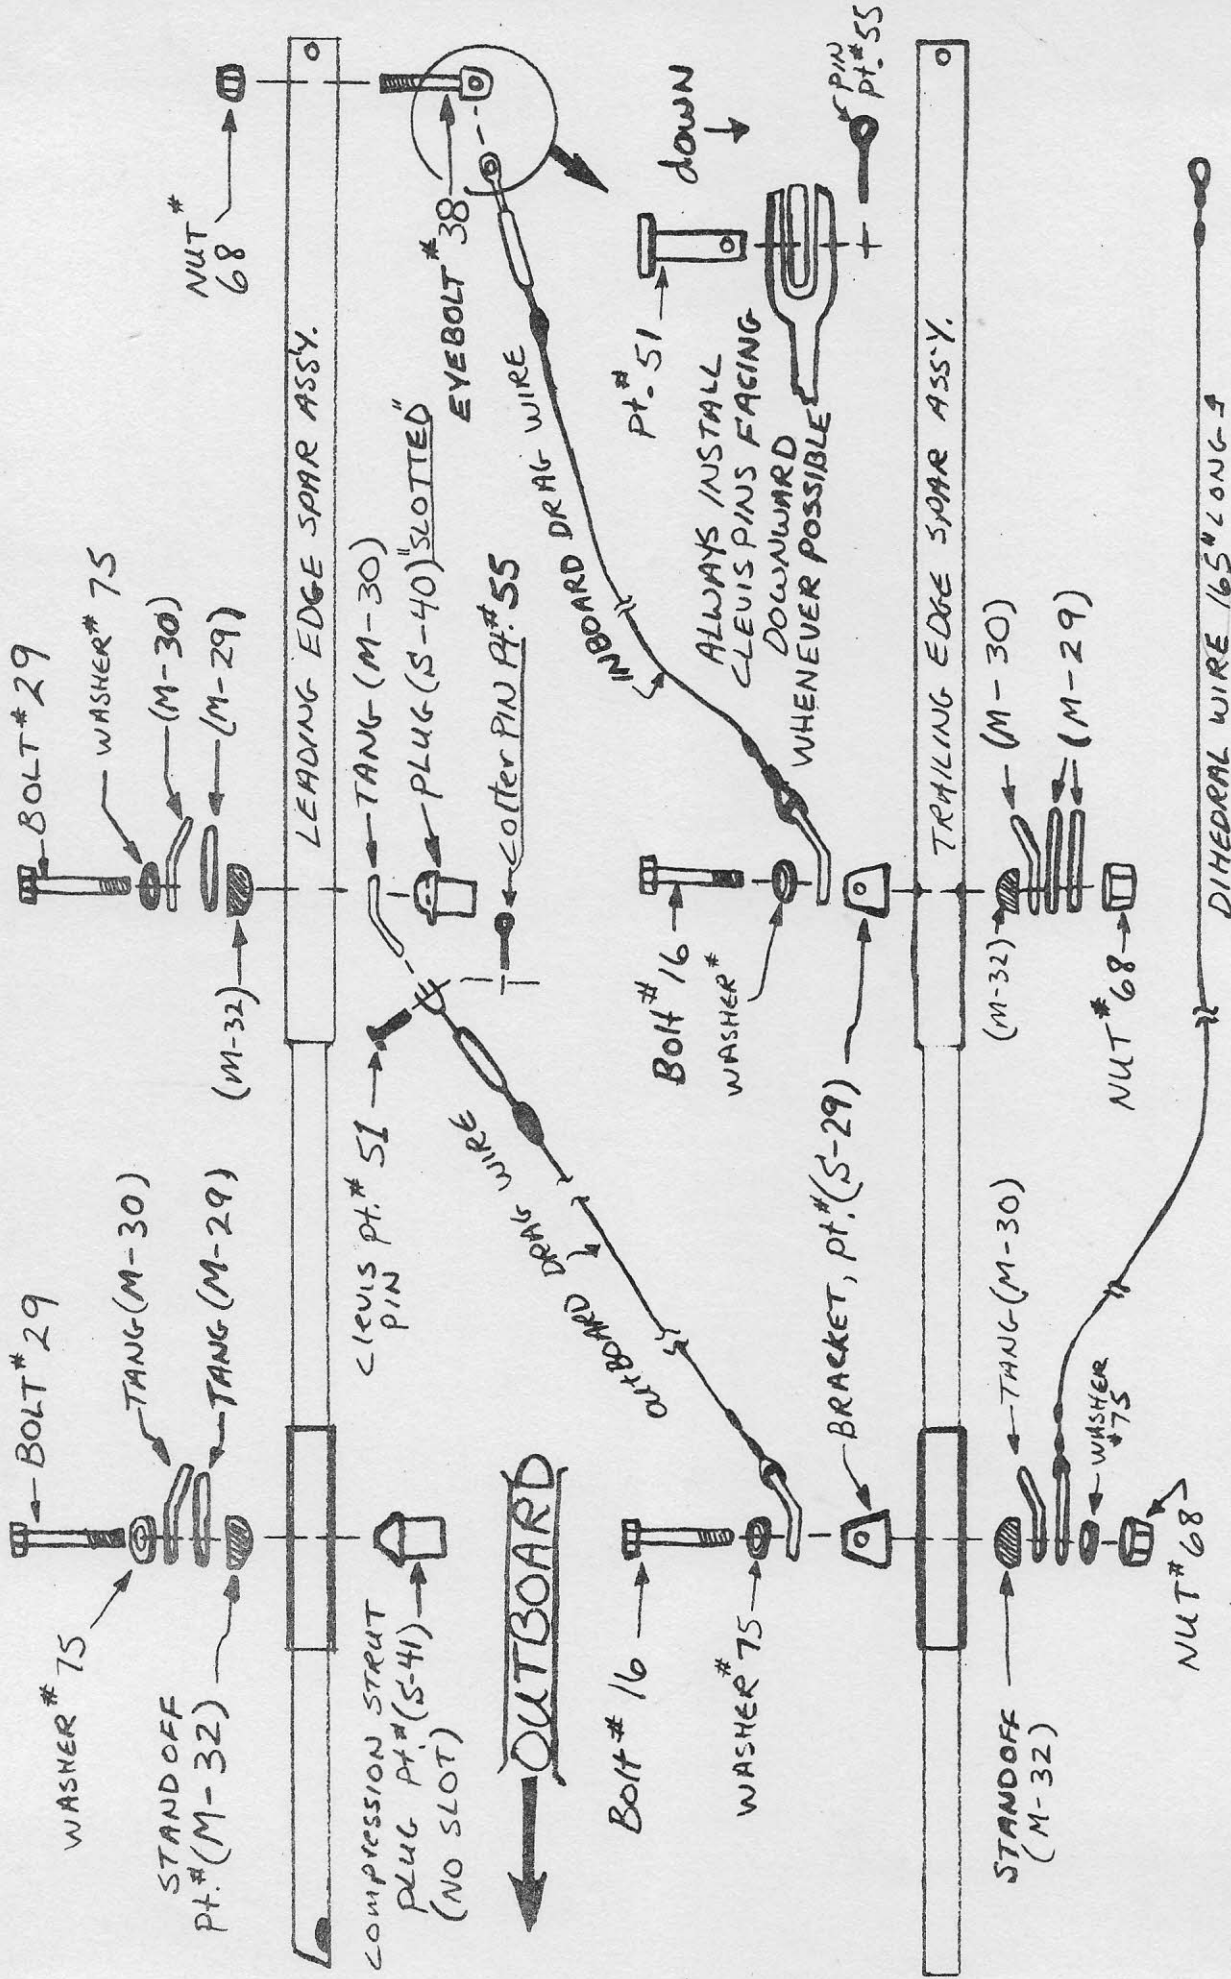 WASHER # 75
BOLT # 29
TANG (M-30)
TANG (M-29)
STANDOFF
Pt.# (M-32)
BOLT # 29
WASHER # 75
(M-30)
(M-29)
(M-32)
NUT #
68
LEADING EDGE SPAR ASS'Y.
COMPRESSION STRUT
PLUG Pt # (S-41)
(NO SLOT)
Clevis Pt.# 51
PIN
TANG (M-30)
PLUG (S-40) "SLOTTED"
Cotter PIN Pt.# 55
EYEBOLT # 38
OUTBOARD
OUTBOARD DRAG WIRE
INBOARD DRAG WIRE
Pt.# 51
down
PIN
Pt.# 55
ALWAYS INSTALL
CLEVIS PINS FACING
DOWNWARD
WHENEVER POSSIBLE
Bolt # 16
WASHER # 75
BRACKET, Pt.# (S-29)
Bolt # 16
WASHER #
TRAILING EDGE SPAR ASS'Y.
STANDOFF
(M-32)
TANG (M-30)
WASHER
#75
NUT # 68
(M-32)
(M-30)
(M-29)
NUT # 68
DIHEDRAL WIRE 165" LONG